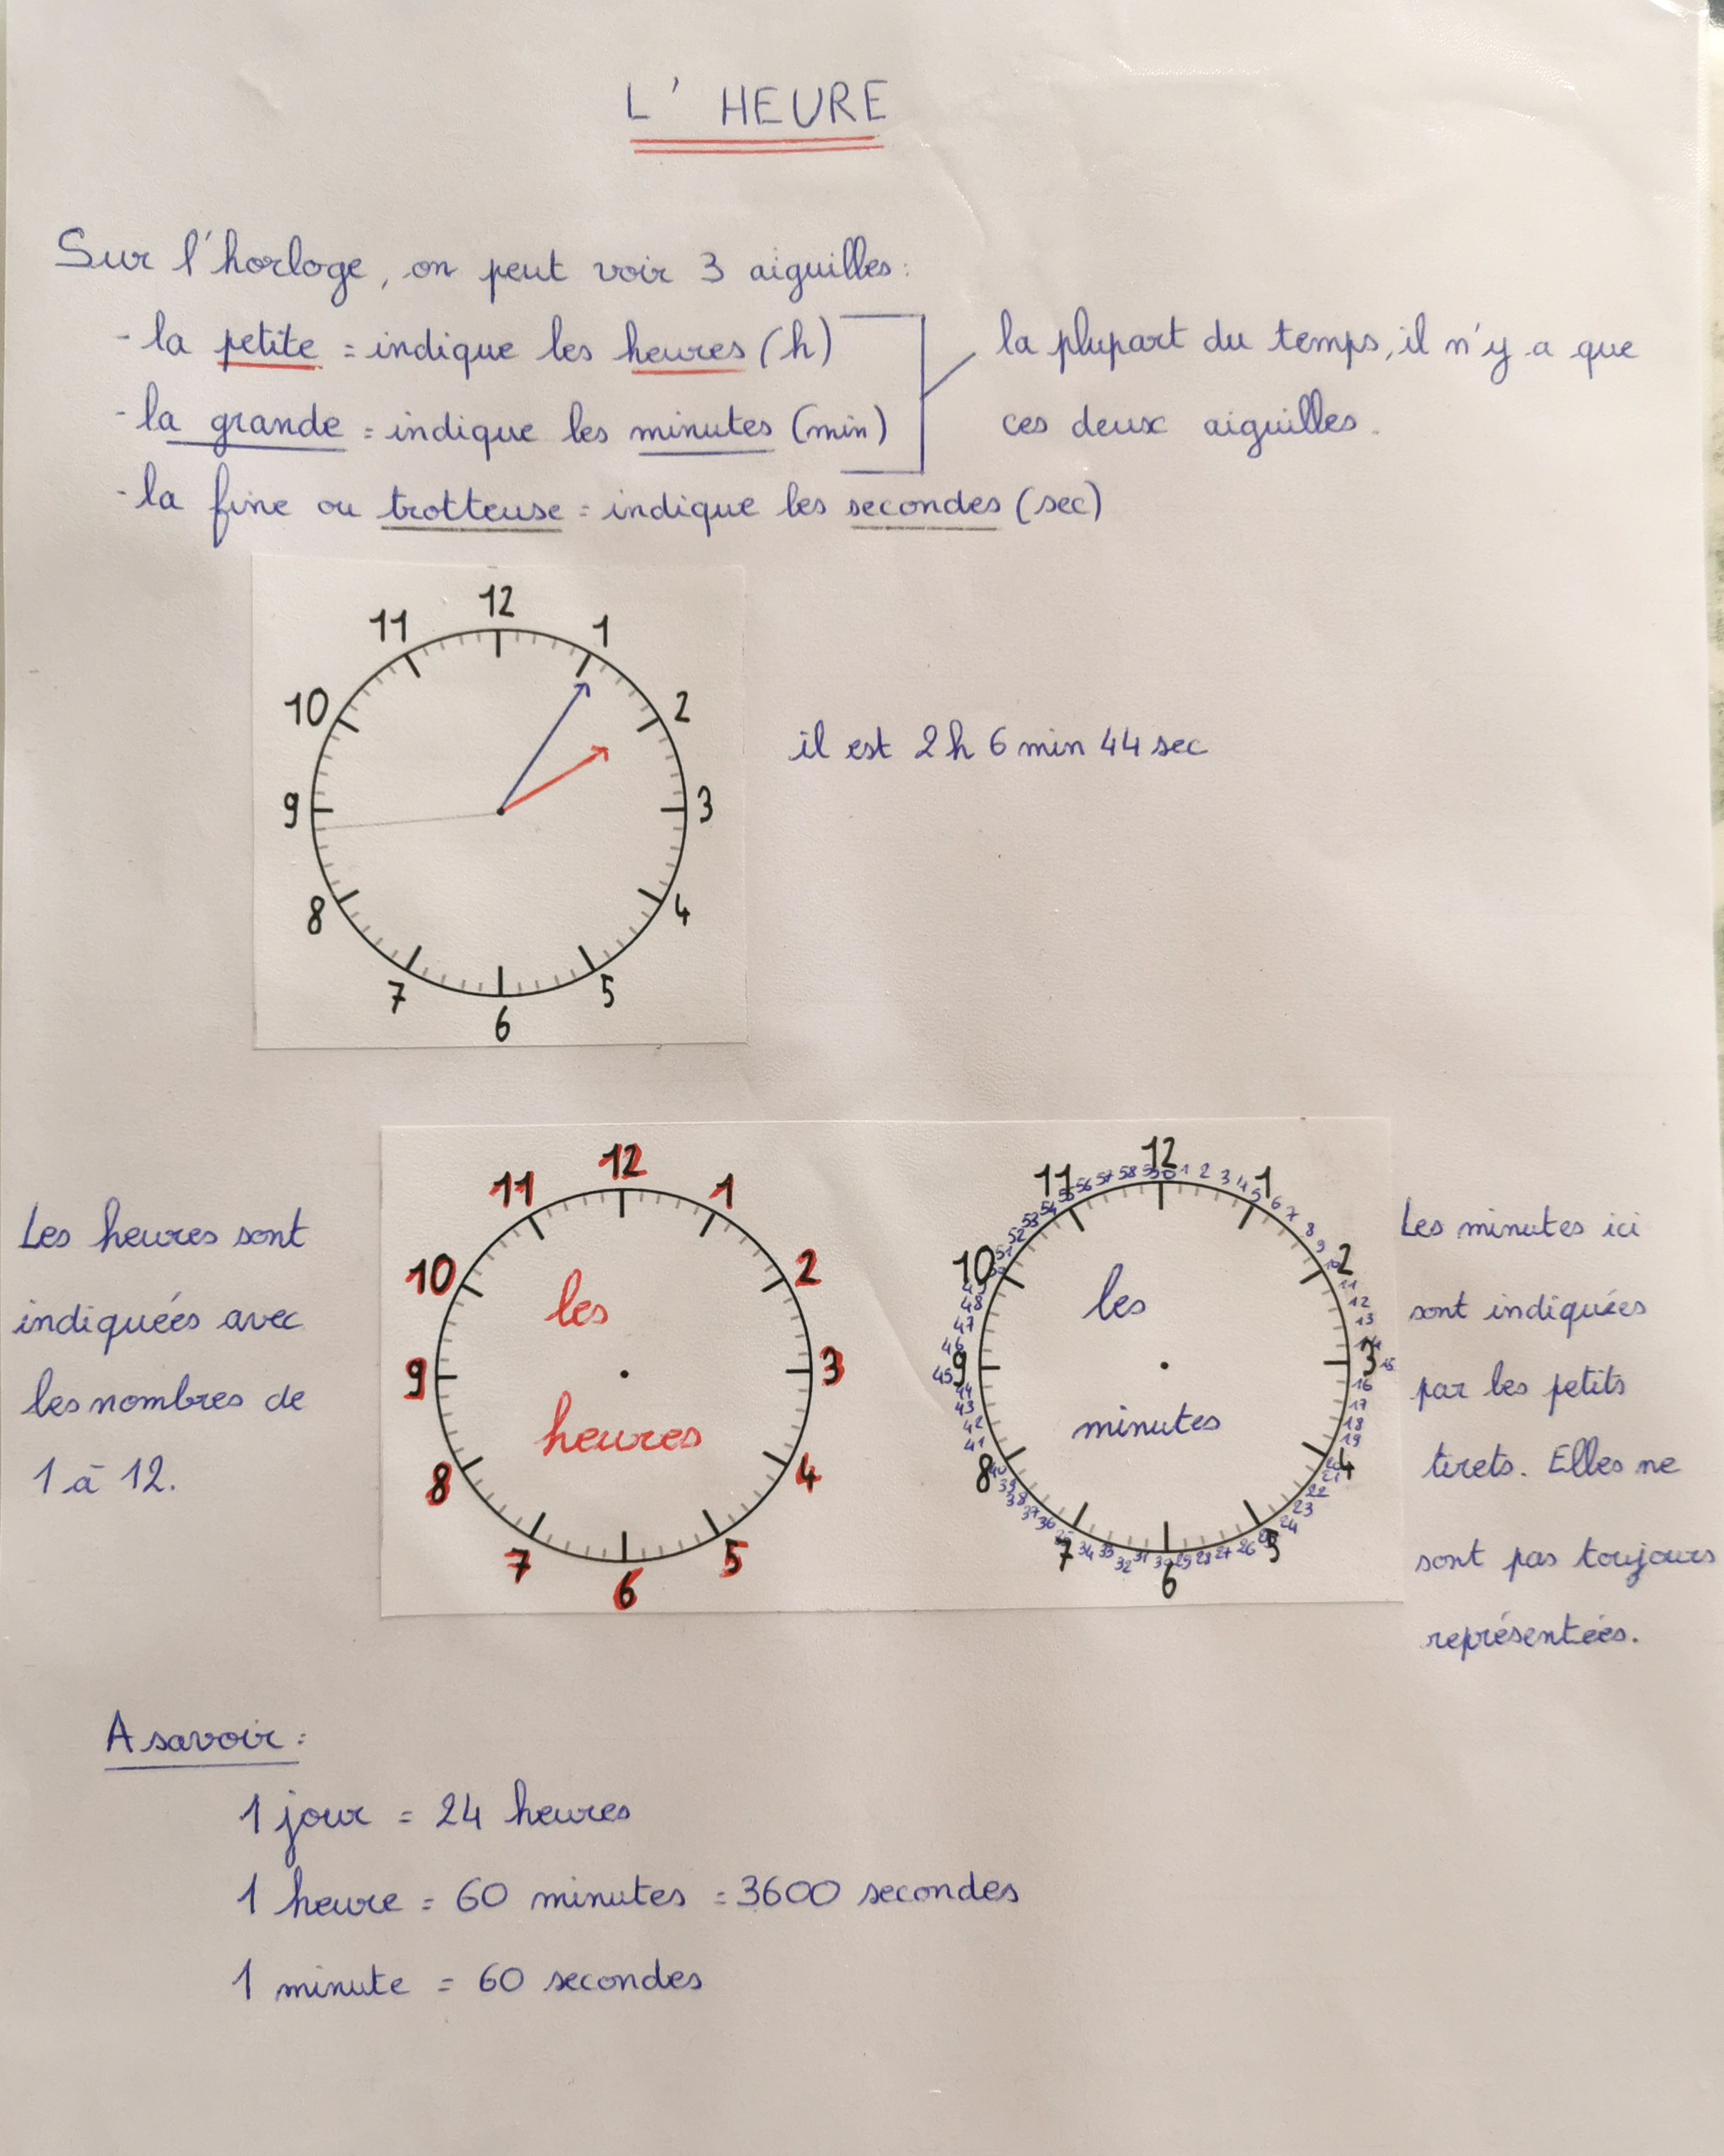 L' HEURE
Sur l'horloge, on peut voir 3 aiguilles:
- la petite = indique les heures (h)
- la grande = indique les minutes (min)
la plupart du temps, il n'y a que
ces deux aiguilles.
- la fine ou trotteuse = indique les secondes (sec)
12
1
2
3
4
5
6
7
8
9
10
11
il est 2h 6 min 44 sec
Les heures sont
indiquées avec
les nombres de
1 à 12.
12
1
2
3
4
5
6
7
8
9
10
11
les
heures
12
1
2
3
4
5
6
7
8
9
10
11
les
minutes
1 2 3 4 5 6 7 8 9 10 11 12 13 14 15 16 17 18 19 20 21 22 23 24 25 26 27 28 29 30 31 32 33 34 35 36 37 38 39 40 41 42 43 44 45 46 47 48 49 50 51 52 53 54 55 56 57 58 59
Les minutes ici
sont indiquées
par les petits
tirets. Elles ne
sont pas toujours
représentées.
A savoir:
1 jour = 24 heures
1 heure = 60 minutes = 3600 secondes
1 minute = 60 secondes